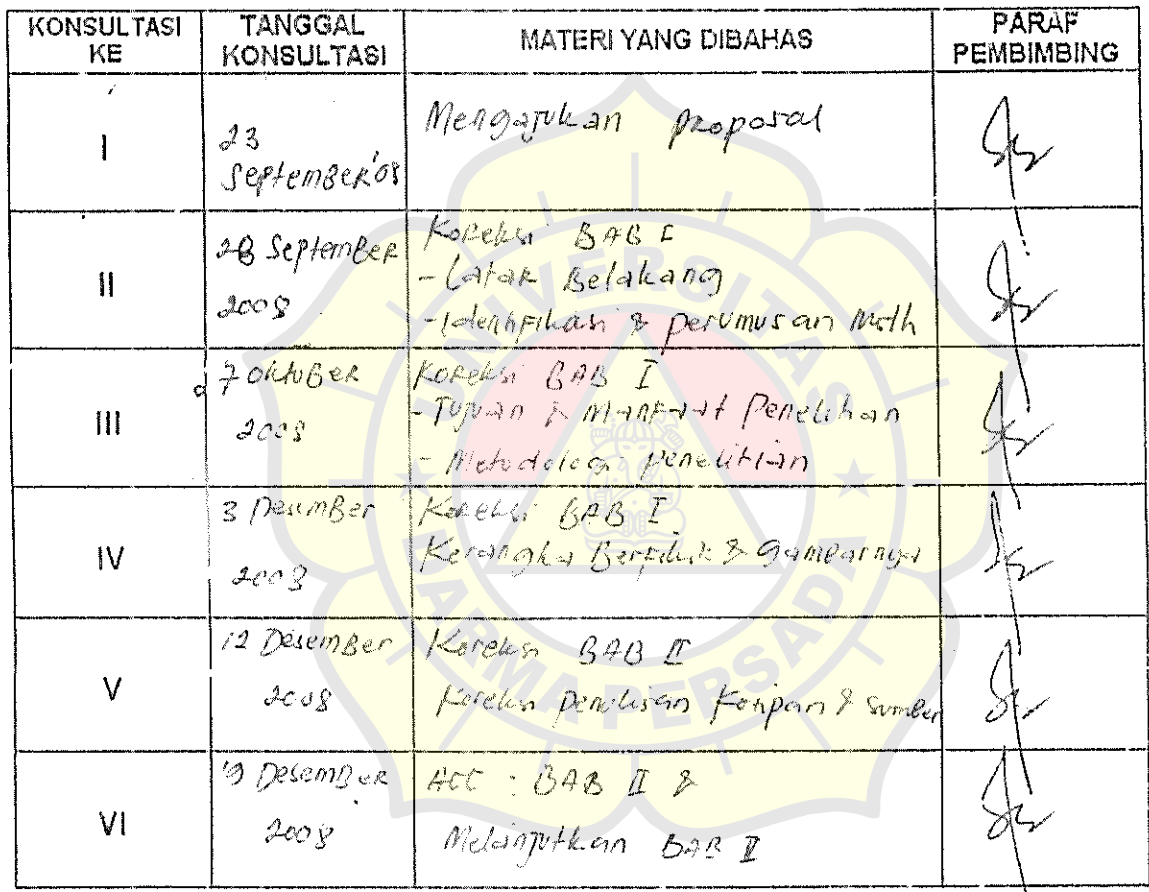 KONSULTASI KE
TANGGAL KONSULTASI
MATERI YANG DIBAHAS
PARAF PEMBIMBING
I
23 September'08
Mengajukan proposal
II
28 September 2008
Koreksi BAB I
- Latar Belakang
- Identifikasi & perumusan Mslh
III
7 Oktober 2008
Koreksi BAB I
- Tujuan & Manfaat Penelitihan
- Metodologi penelitian
IV
3 Desember 2008
Koreksi BAB I
Kerangka Berfikir & Gambarnya
V
12 Desember 2008
Koreksi BAB II
Koreksi penulisan Kutipan & Sumber
VI
19 Desember 2008
ACC : BAB II &
Melanjutkan BAB
UNIVERSITAS
DARMA PERSADA